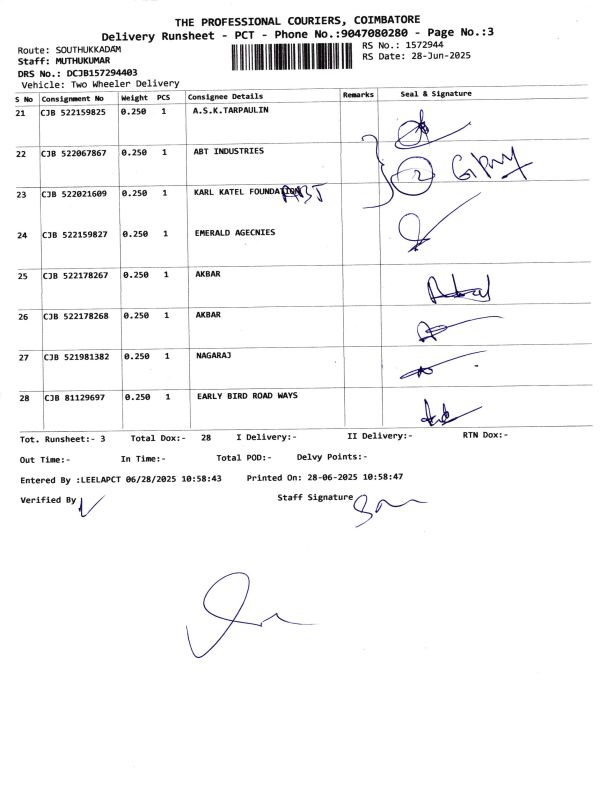 THE PROFESSIONAL COURIERS, COIMBATORE
Delivery Runsheet - PCT - Phone No.:9047080280 - Page No.:3
Route: SOUTHUKKADAM RS No.: 1572944
Staff: MUTHUKUMAR RS Date: 28-Jun-2025
DRS No.: DCJB157294403
Vehicle: Two Wheeler Delivery
S No Consignment No Weight PCS Consignee Details Remarks Seal & Signature
21 CJB 522159825 0.250 1 A.S.K.TARPAULIN
22 CJB 522067867 0.250 1 ABT INDUSTRIES
2
23 CJB 522021609 0.250 1 KARL KATEL FOUNDATION ABT
24 CJB 522159827 0.250 1 EMERALD AGECNIES
25 CJB 522178267 0.250 1 AKBAR
26 CJB 522178268 0.250 1 AKBAR
27 CJB 521981382 0.250 1 NAGARAJ
28 CJB 81129697 0.250 1 EARLY BIRD ROAD WAYS
Tot. Runsheet:- 3 Total Dox:- 28 I Delivery:- II Delivery:- RTN Dox:-
Out Time:- In Time:- Total POD:- Delvy Points:-
Entered By :LEELAPCT 06/28/2025 10:58:43 Printed On: 28-06-2025 10:58:47
Verified By Staff Signature